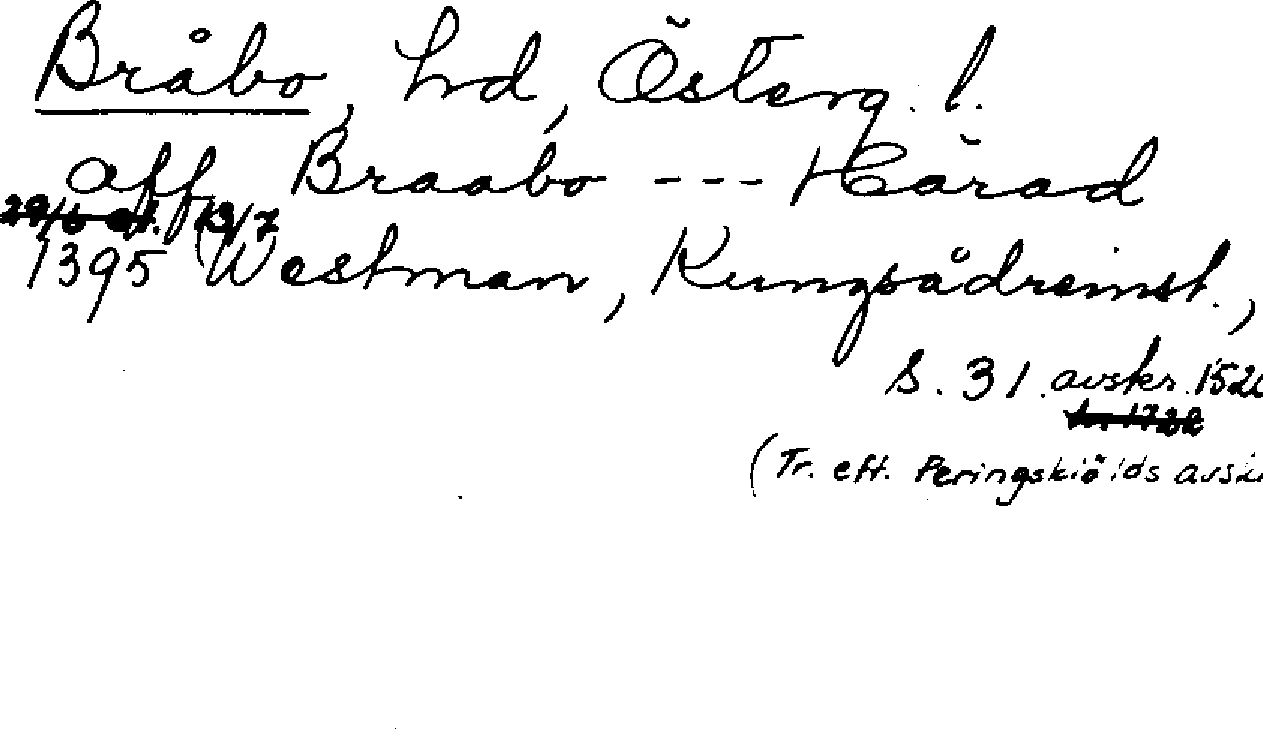 Bråbo, hrd, Österg. l.
aff Braabo --- Härad
13/7
1395 Westman, Kungsådreinst.,
s. 31. avskr. 152
(Tr. eft. Peringskiölds avsk